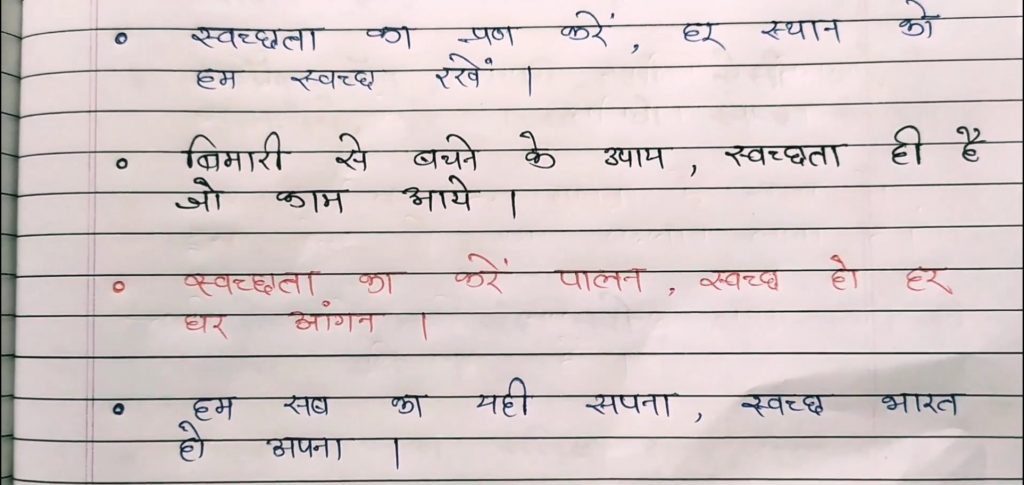 • स्वच्छता का प्रण करें, हर स्थान को
हम स्वच्छ रखें ।
• बिमारी से बचने के उपाय, स्वच्छता ही है
जो काम आये ।
• स्वच्छता का करें पालन, स्वच्छ हो हर
घर आंगन ।
• हम सब का यही सपना, स्वच्छ भारत
हो अपना ।